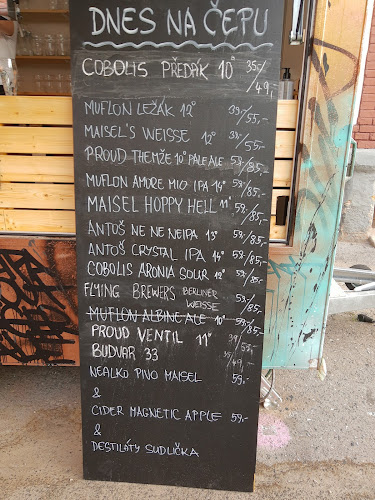 DNES NA ČEPU
COBOLIS PŘEDÁK 10° 35/49,-
MUFLON LEŽÁK 12° 39/55,-
MAISEL'S WEISSE 12° 39/55,-
PROUD THEMŽE 10° PALE ALE 59/85,-
MUFLON AMORE MIO IPA 14° 59/85,-
MAISEL HOPPY HELL 11° 59/85,-
ANTOŠ NE NE NEIPA 13° 59/85,-
ANTOŠ CRYSTAL IPA 14° 59/85,-
COBOLIS ARONIA SOUR 12° 59/85,-
FLYING BREWERS BERLINER WEISSE 59/85,-
MUFLON ALBINE ALE 10° 59/85,-
PROUD VENTIL 11° 39/53,-
BUDVAR 33 35/49,-
NEALKO PIVO MAISEL 59,-
&
CIDER MAGNETIC APPLE 59,-
&
DESTILÁTY SUDLIČKA